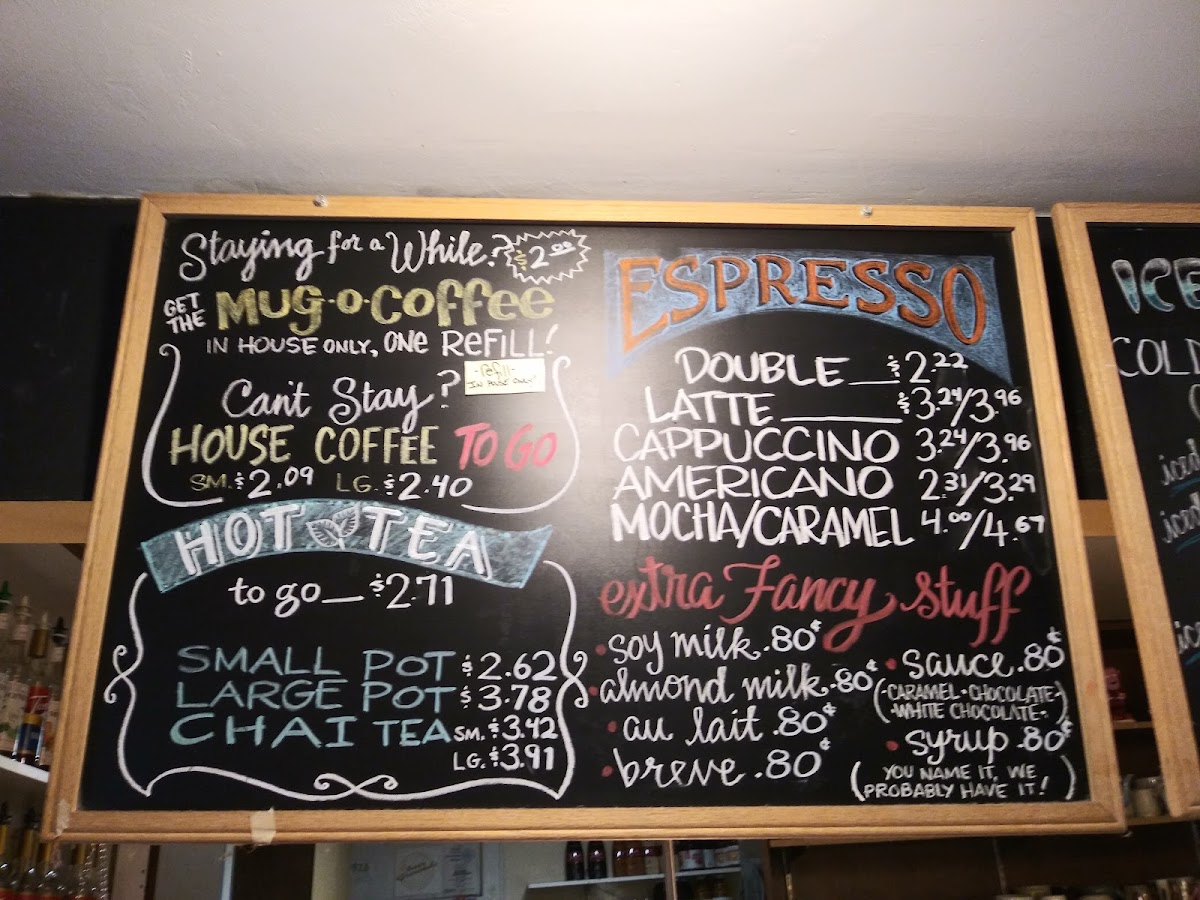 Staying for a While? $2.00
GET THE MUG-O-COFFEE
IN HOUSE ONLY, ONE REFILL!
-Refill-
IN HOUSE ONLY!
Cant Stay?
HOUSE COFFEE TO GO
SM. $2.09 LG. $2.40
HOT TEA
to go__ $2.71
SMALL POT $2.62
LARGE POT $3.78
CHAI TEA SM. $3.42
LG. $3.91
ESPRESSO
DOUBLE __ $2.22
LATTE ____ $3.24/3.96
CAPPUCCINO 3.24/3.96
AMERICANO 2.31/3.29
MOCHA/CARAMEL 4.00/4.67
extra Fancy stuff
• soy milk .80¢
• almond milk .80¢
• au lait .80¢
• breve .80¢
• sauce .80¢
(•CARAMEL•CHOCOLATE•
•WHITE CHOCOLATE•)
• syrup .80¢
(YOU NAME IT, WE
PROBABLY HAVE IT!)
ICE
COLD
iced